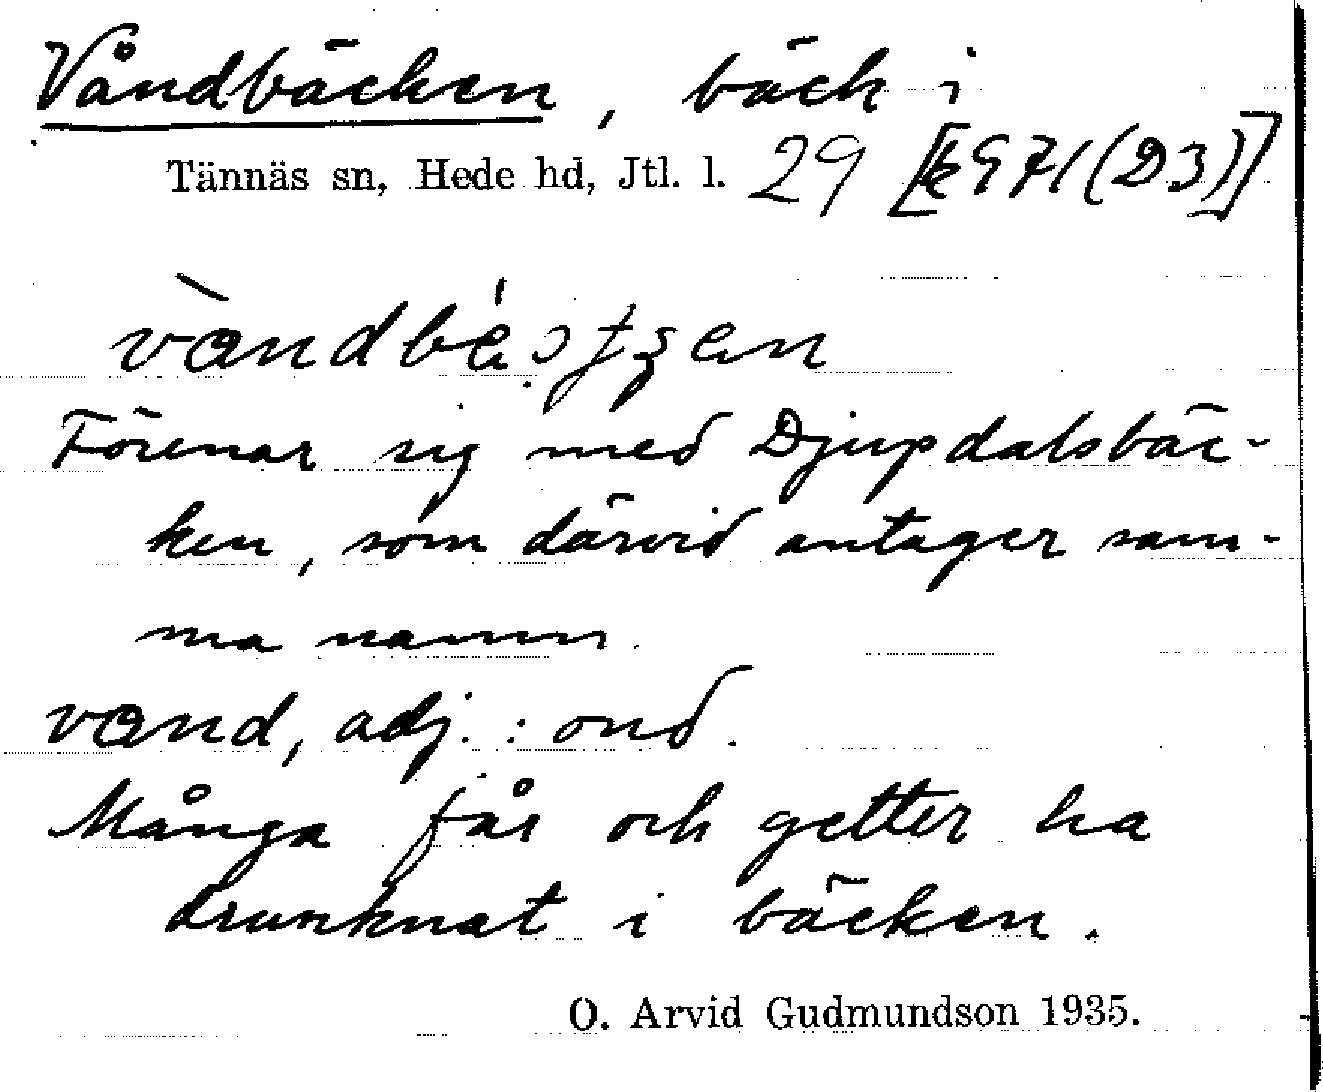 Våndbäcken, bäck i
Tännäs sn, Hede hd, Jtl. l. 29 [k 971 (D3)]
Förenar sig med Djupdalsbäc-
ken, som därvid antager sam-
ma namn.
vand, adj.: ond.
Många får och getter ha
drunknat i bäcken.
O. Arvid Gudmundson 1935.